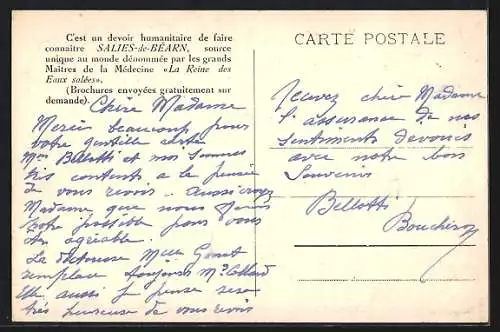 C'est un devoir humanitaire de faire
connaître SALIES-de-BÉARN, source
unique au monde dénommée par les grands
Maîtres de la Médecine «La Reine des
Eaux salées».
(Brochures envoyées gratuitement sur
demande).
Chère Madame
Merci beaucoup pour
votre gentille carte
Mme Bellotti et moi sommes
très contents a la pensée
de vous revoir. aussi croyez
Madame que nous ferons
notre possible pour vous
être agréable.
La doctoresse Melle
remplace toujours Mr
Elle aussi je pense sera
très heureuse de vous revoir
CARTE POSTALE
Recevez chère Madame
l'assurance de nos
sentiments dévoués
avec notre bon
souvenir
Bellotti